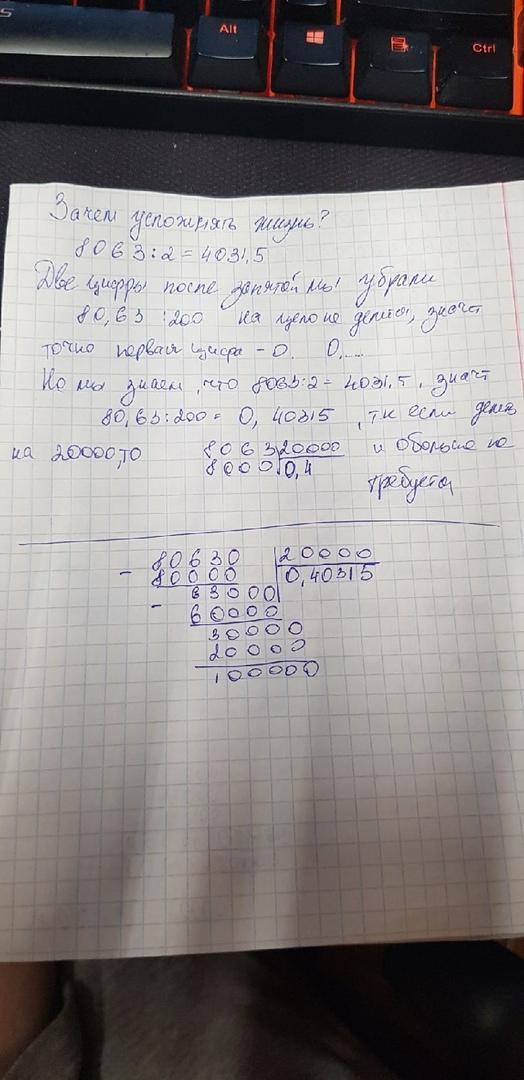 Alt
Ctrl
Зачем усложнять жизнь?
8063:2=4031,5
Две цифры после запятой мы убрали
80,63 :200 на цело не делится, значит
точно первая цифра - 0. 0,....
Но мы знаем, что 8063:2=4031,5, значит
80,63:200= 0, 40315, тк если делить
на 20000, то 8063 20000 и обольше не
8000 0,4
требуется
- 80630 20000
80000 0,40315
- 63000
60000
30000
20000
100000